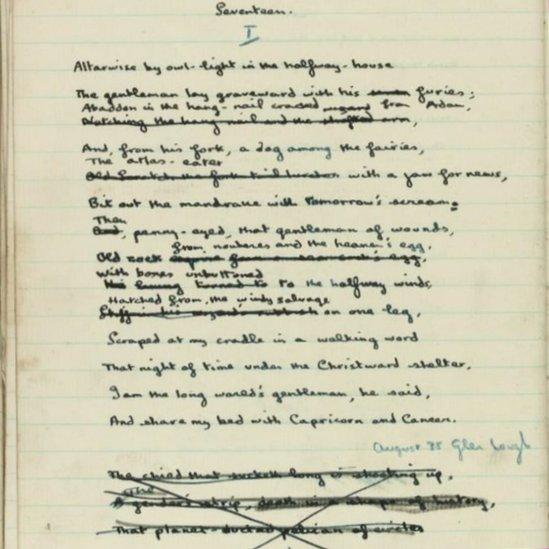 Seventeen.
I
Altarwise by owl-light in the halfway-house
The gentleman lay graveward with his furies;
Abaddon in the hang-nail cracked from Adam,
Watching the hang nail and the arm,
And, from his fork, a dog among the fairies,
The atlas-eater
Old Scratch the fork tail with a jaw for news,
Bit out the mandrake with tomorrow's scream.
Then
penny-eyed, that gentleman of wounds,
from nowheres and the heaven's egg,
Old cock egg,
With bones unbuttoned
turned to to the halfway winds,
Hatched from the windy salvage
on one leg,
Scraped at my cradle in a walking word
That night of time under the Christward shelter,
I am the long world's gentleman, he said,
And share my bed with Capricorn and Cancer.
August 35 Glen Lough
The child that sucketh long is shooting up,
The
A strip, death is a shape of history,
That planet-ducted pelican of circles